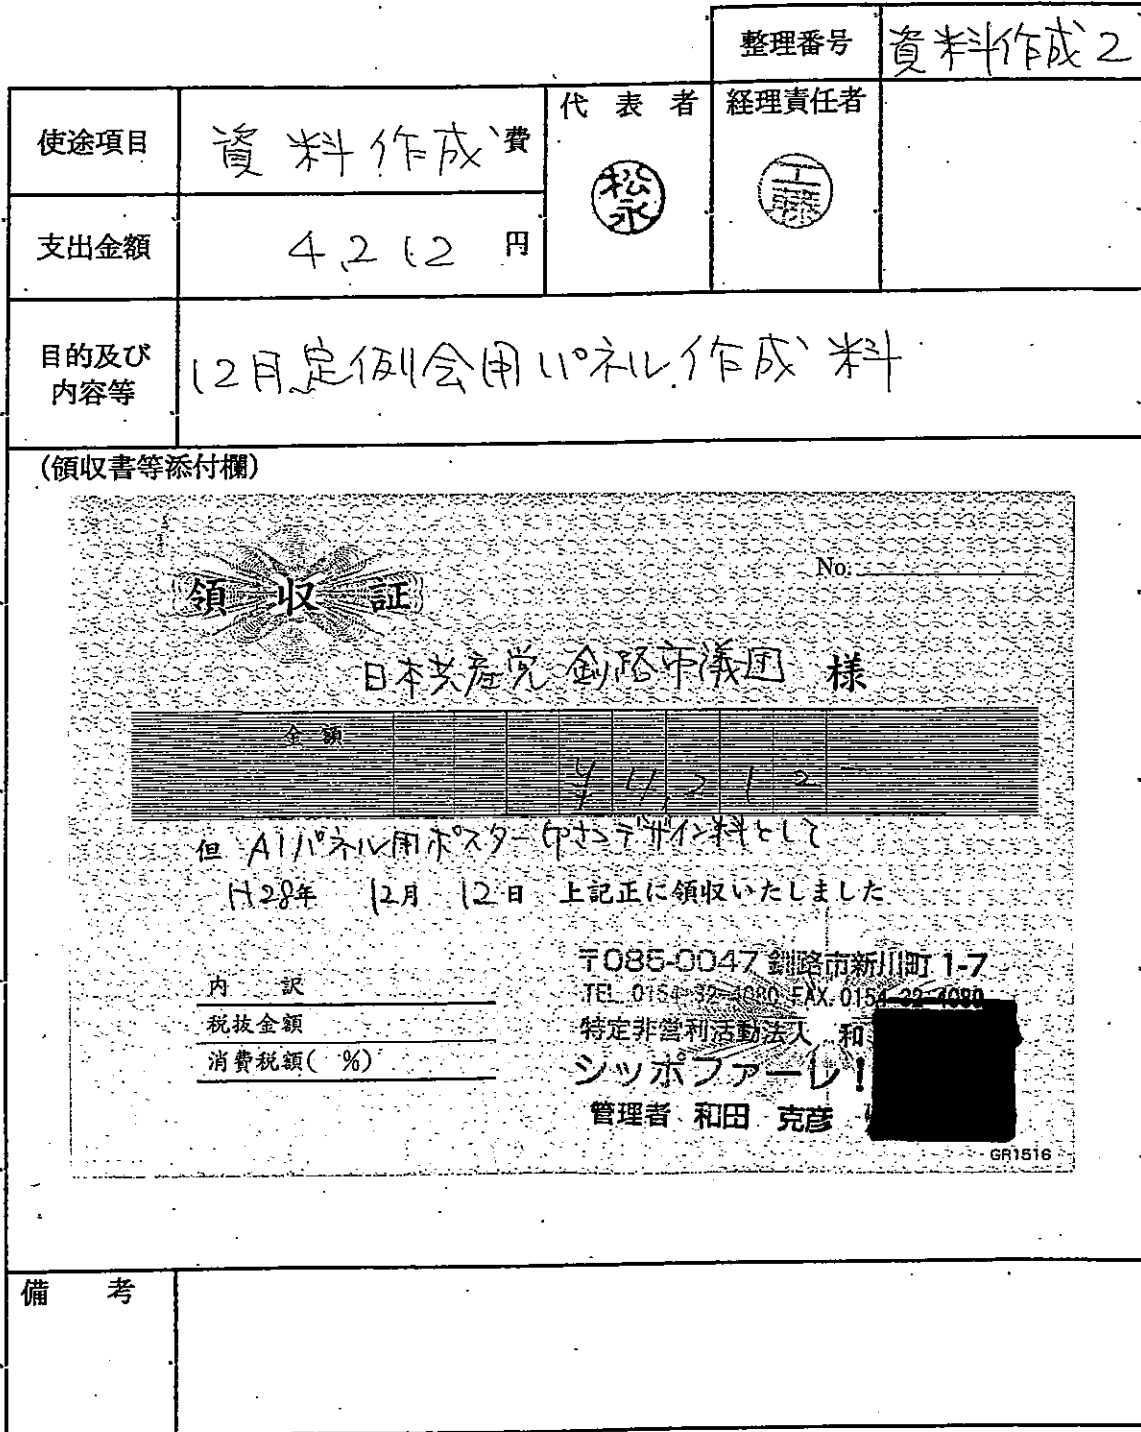 整理番号 資料作成2
使途項目 資料作成費
代表者 経理責任者
松永 工藤
支出金額 4,212円
目的及び内容等 12月定例会用パネル作成料
(領収書等添付欄)
領収証
No.
日本共産党 釧路市議団 様
金額 ¥4,212
但 A1パネル用ポスター デザイン料として
H28年 12月 12日 上記正に領収いたしました
〒085-0047 釧路市新川町 1-7
内訳
TEL 0154-32-4080 FAX 0154-32-4080
税抜金額
特定非営利活動法人 和
消費税額( %)
シッポファーレ!
管理者 和田 克彦
GR1516
備考